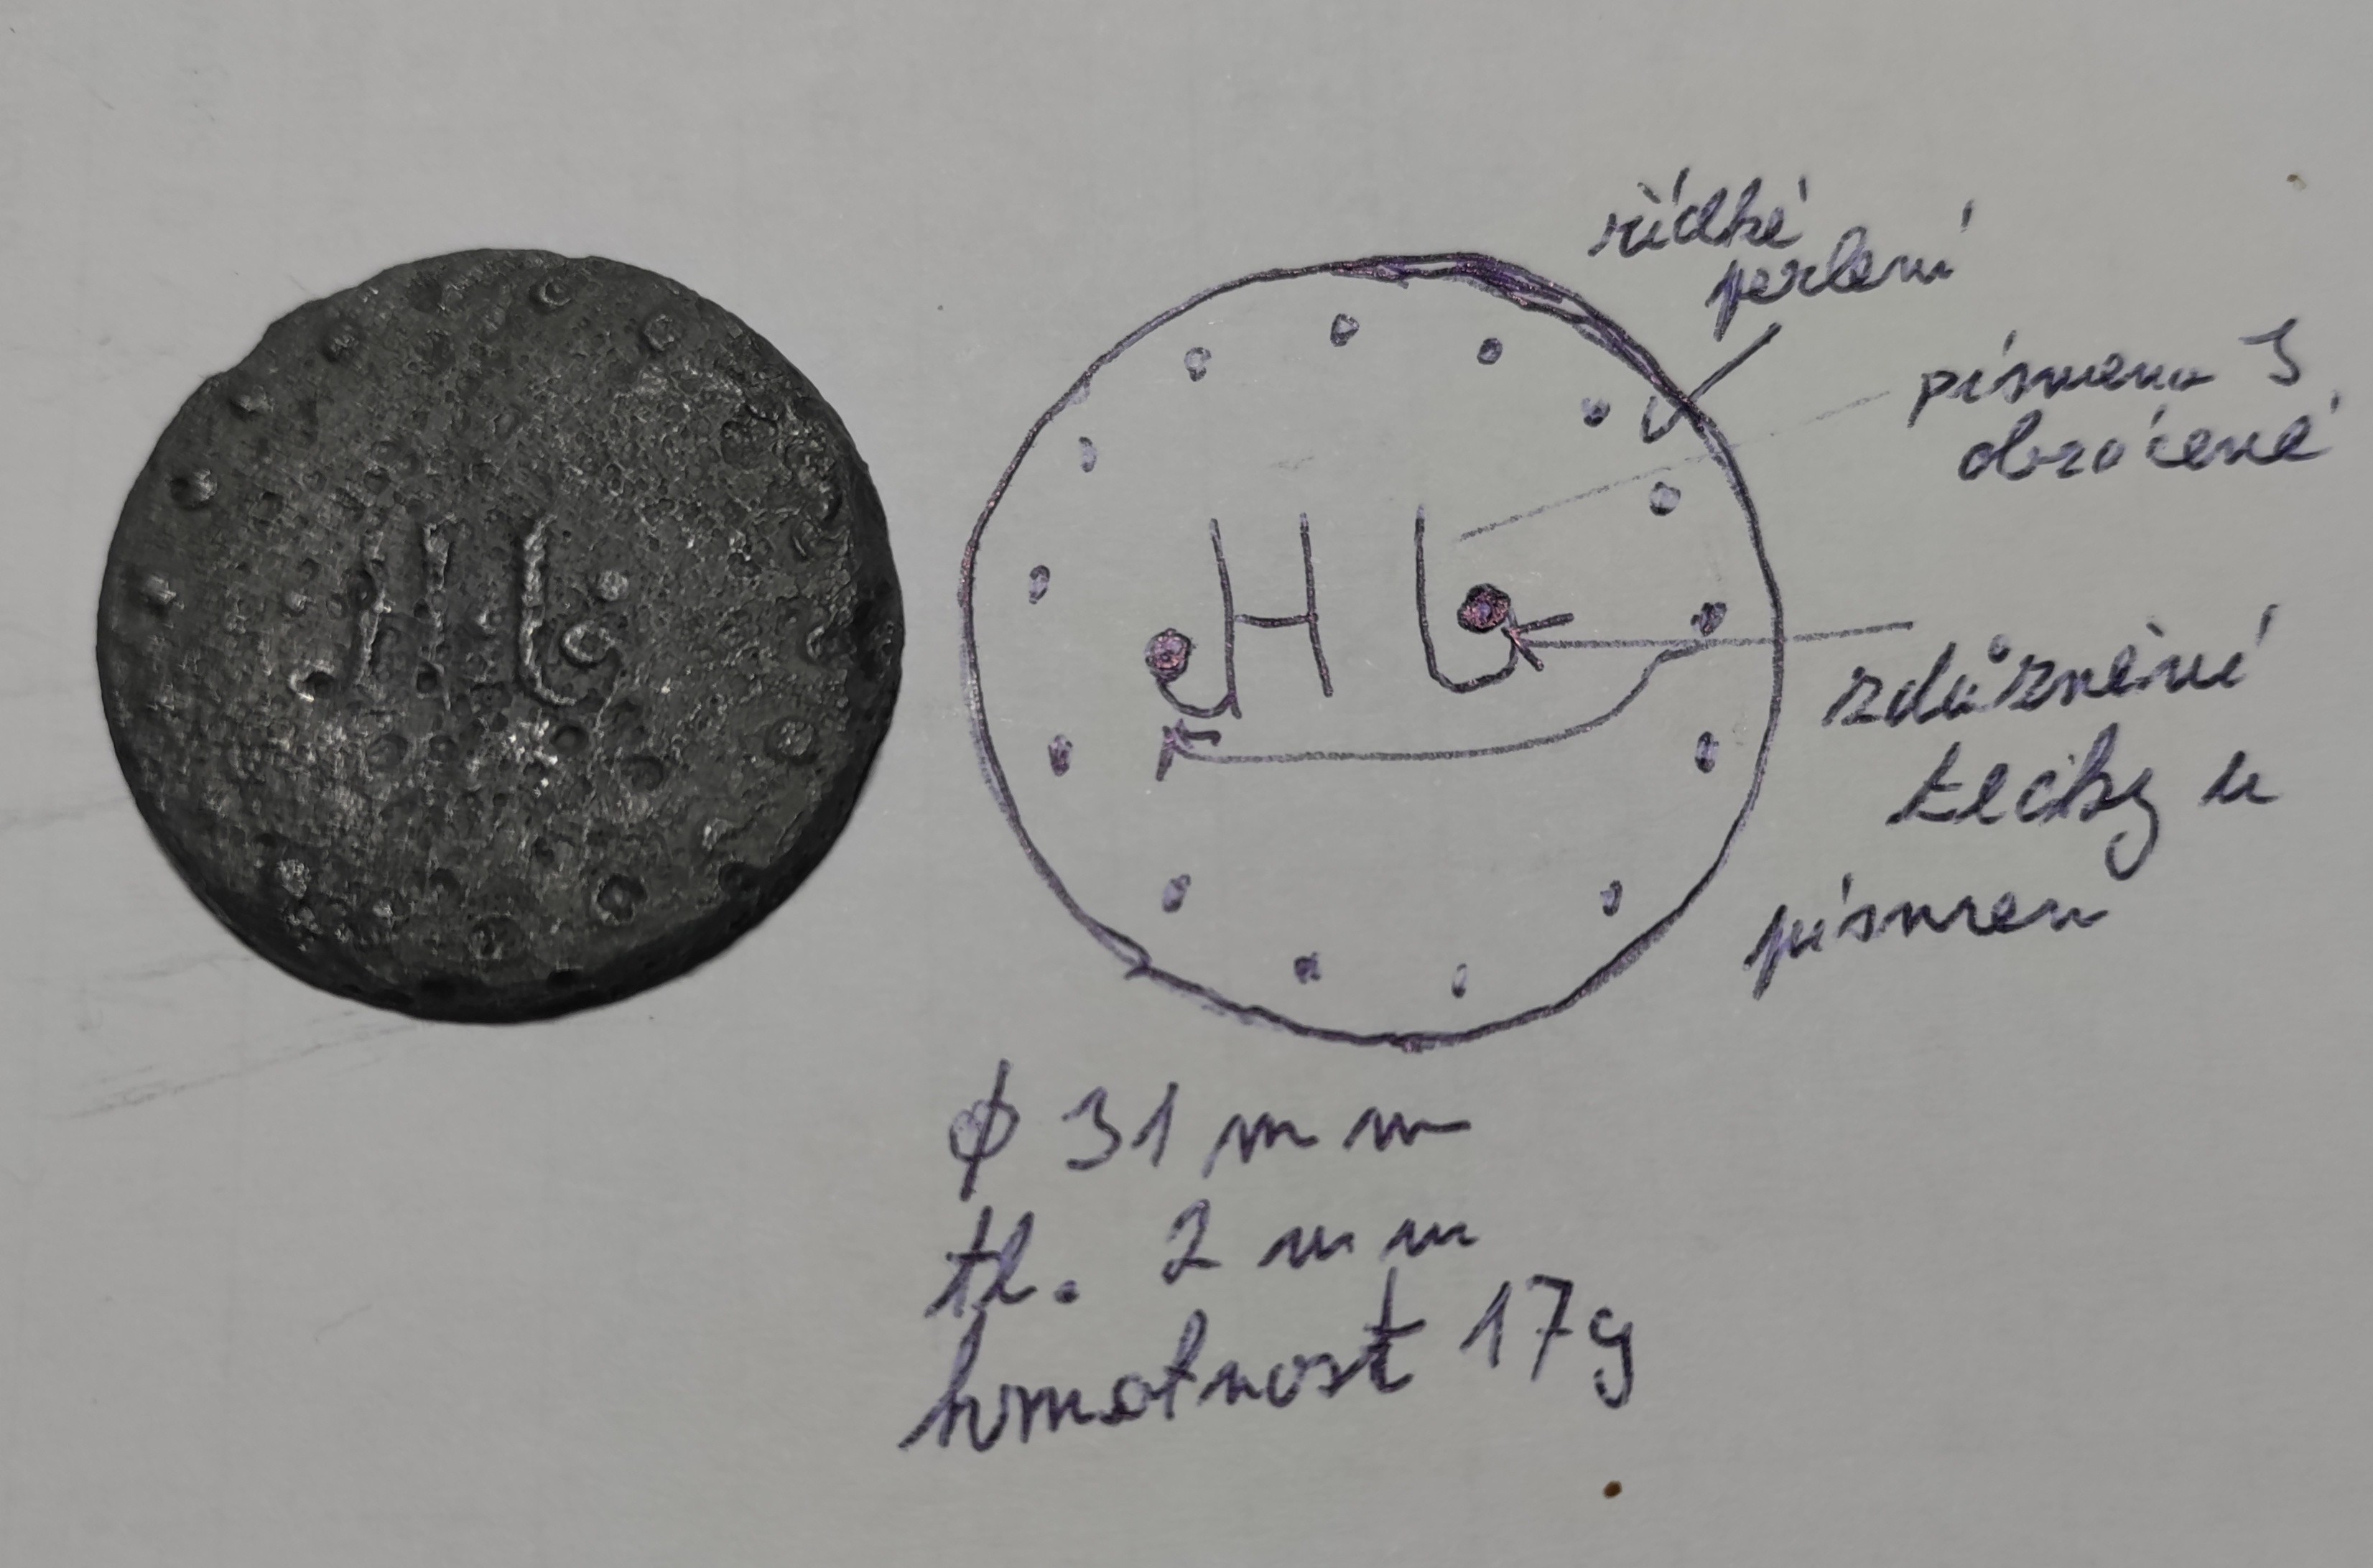 řídké
perlení
písmeno J
obrácené
HJ
zdůznění
tečky u
písmen
ϕ 31 mm
tl. 2 mm
hmotnost 17g